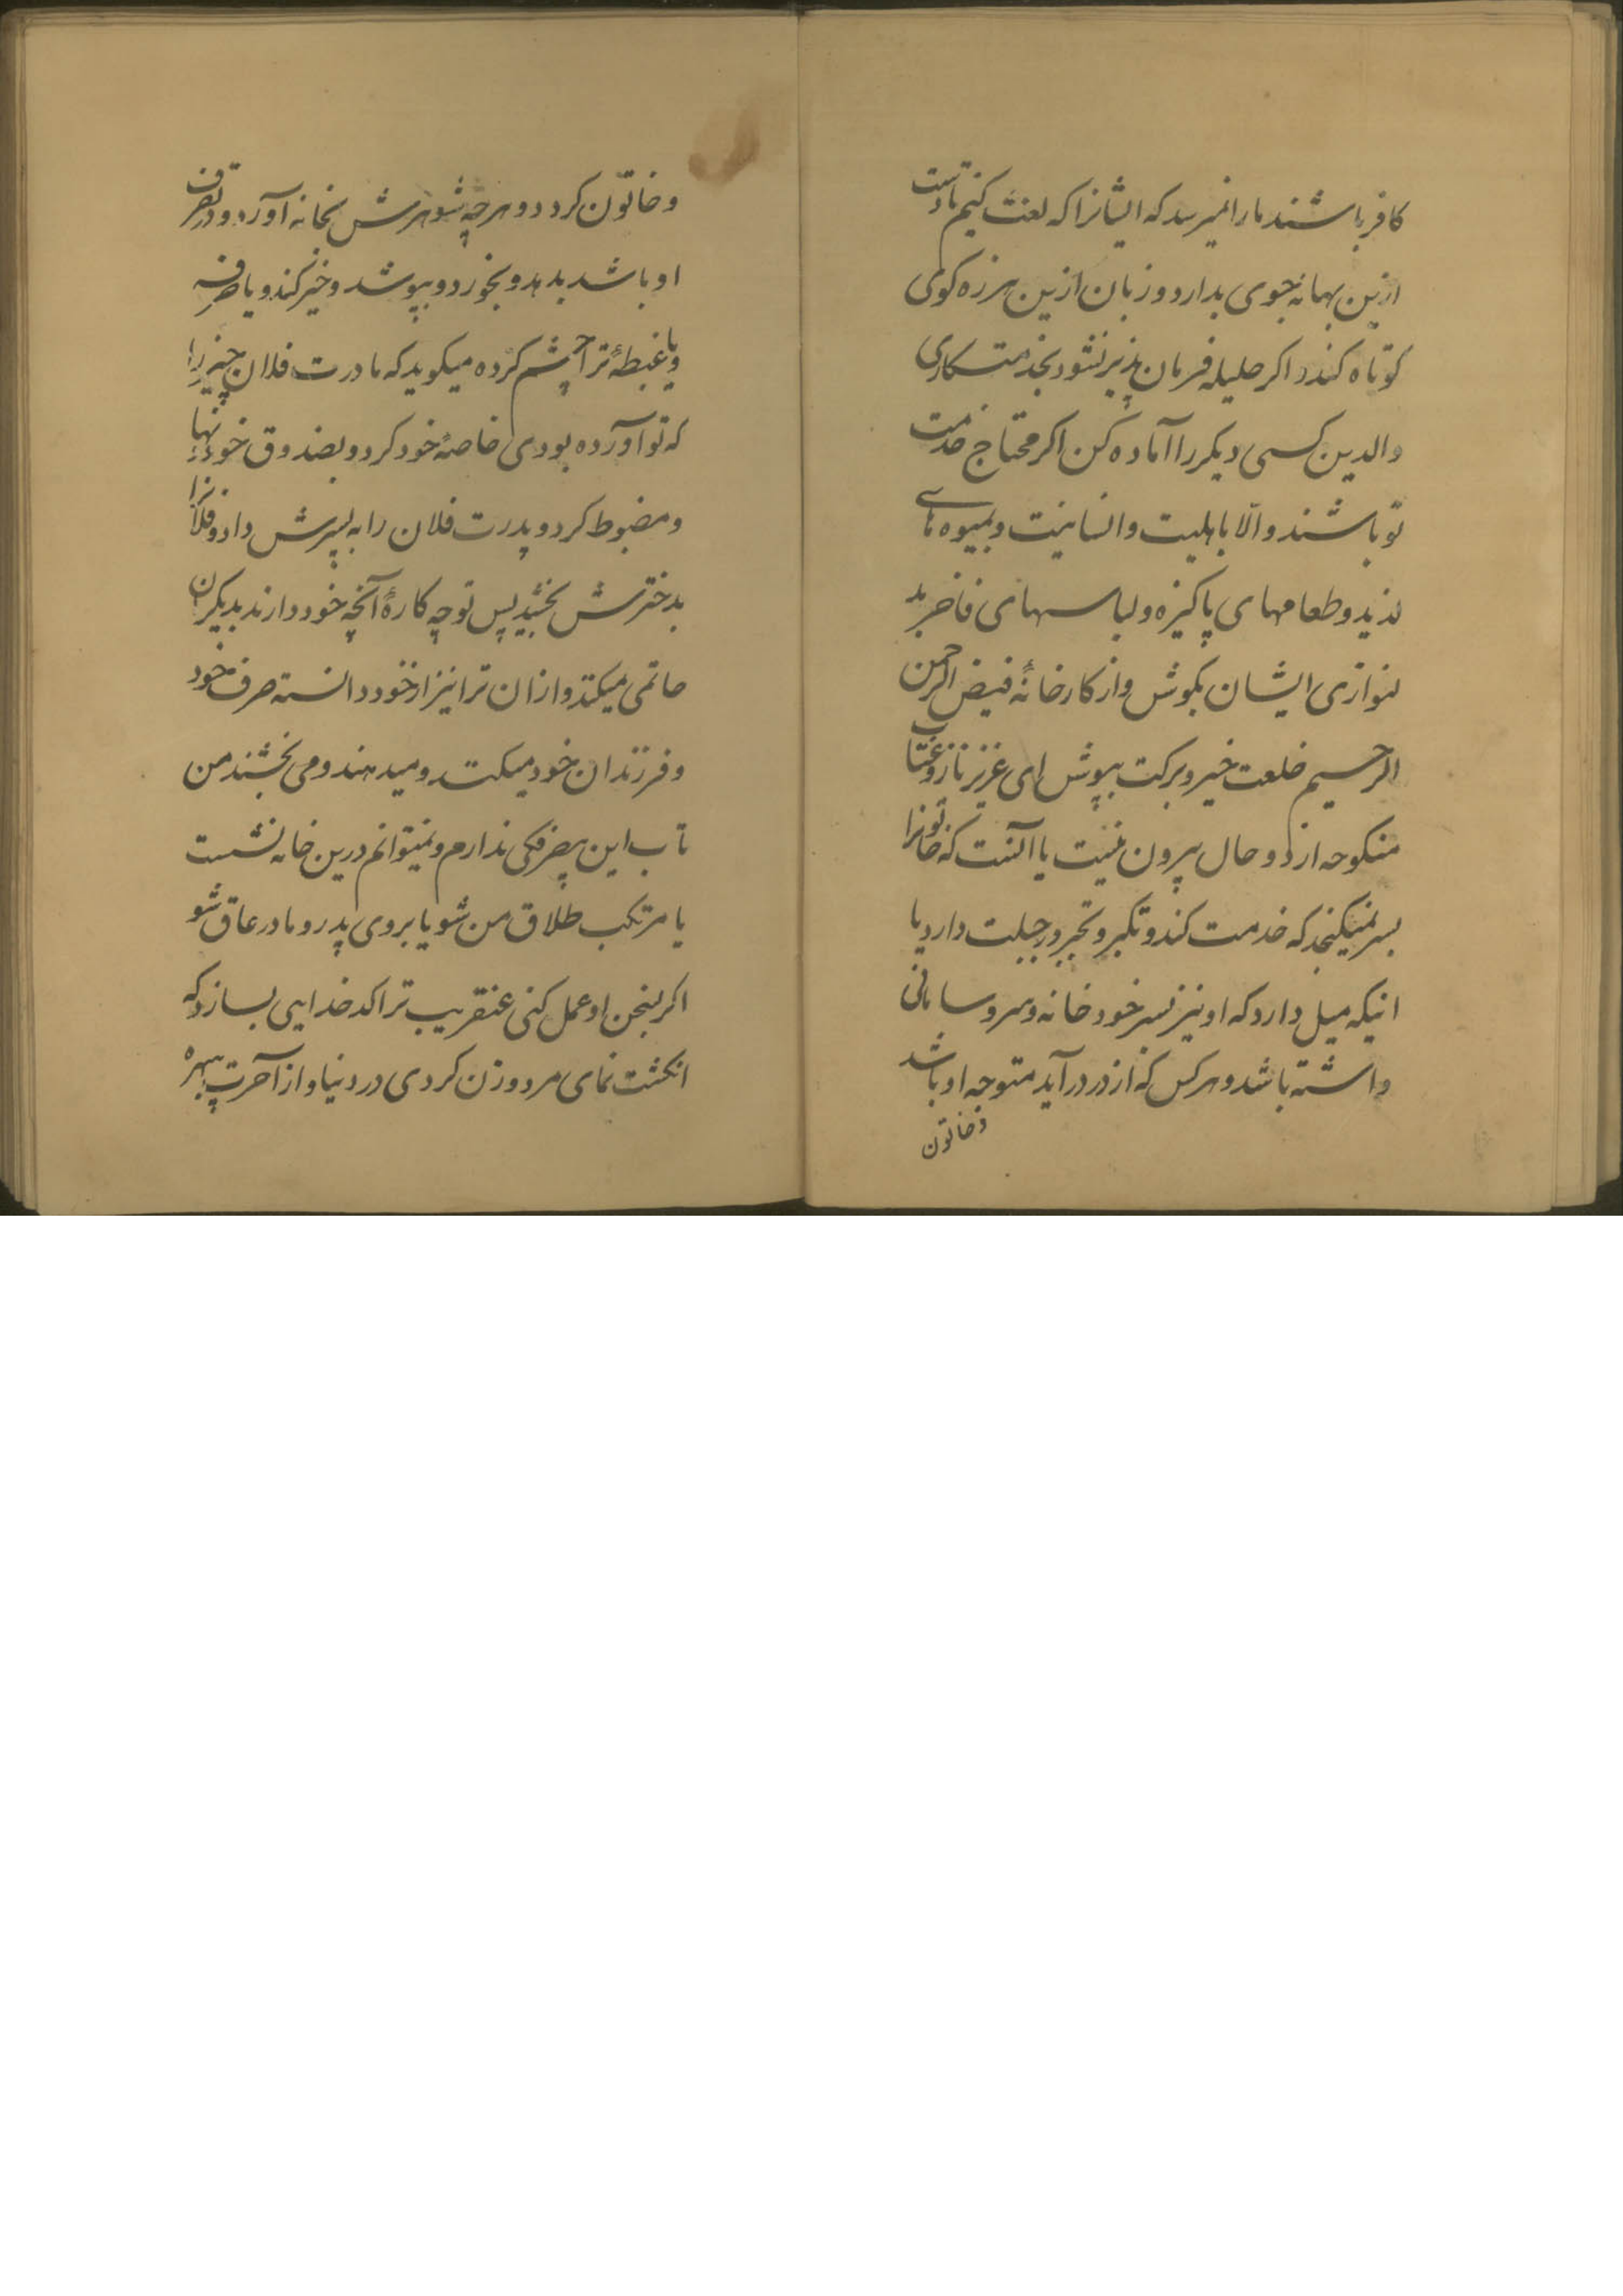 کافر باشند ما را نمیرسد که ایشانرا که لعنت کنیم تا دست
ازین بهانه جوی بدارد و زبان ازین هرزه کوی
کوتاه کند و اکر حلیله فرمان پذیر نشود بخدمتکاری
والدین کسی دیکر را آماده کن اکر محتاج خدمت
تو باشند والّا باهلیت و انسانیت و بمیوه های
لذیذ و طعامهای پاکیزه و لباسهای فاخر بد
لنوازی ایشان بکوش و از کارخانهٔ فیض الرحمن
الرحیم خلعت خیر و برکت بپوش ای عزیز ناز و عتاب
منکوحه از دو حال بیرون نیست یا آنست که خاتونرا
بسر نمیکنجد که خدمت کند و تکبر و تجبر در جبلت دارد یا
اینکه میل دارد که او نیز بسر خود خانه و سر و سامانی
داشته باشد و هر کس که از در درآید متوجه او باشد
و خاتون
و خاتون کردد و هرچه شوهرش بخانه آورد و در تصرف
او باشد بدهد و بخورد و بپوشد و خیر کند و یا صرفه
و یا غبطهٔ ترا چشم کرده میکوید که مادرت فلان چیز را
که تو آورده بودی خاصهٔ خود کرد و بصندوق خود نها
و مضبوط کرد و پدرت فلان را به پسرش داد و فلانرا
بدخترش بخشید پس تو چه کارهٔ آنچه خود دارند بدیکران
حاتمی میکنند و از ان ترا نیز از خود دانسته صرف خود
و فرزندان خود میکنند و میدهند و می بخشند من
تاب این بیصرفکی ندارم و نمیتوانم درین خانه نشست
یا مرتکب طلاق من شو یا بروی پدر و مادر عاق شو
اکر بسخن او عمل کنی عنقریب ترا کدخدایی بسازد که
انکشت نمای مرد و زن کردی در دنیا و از آخرت بیبهره